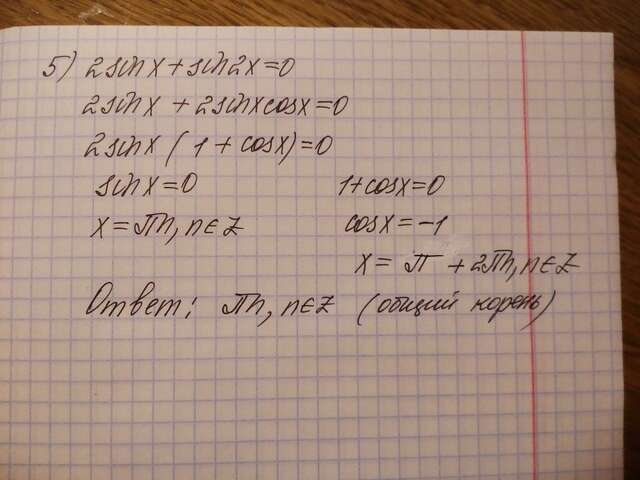 5) 2sinx + sin2x = 0
2sinx + 2sinxcosx = 0
2sinx (1 + cosx) = 0
sinx = 0 1 + cosx = 0
x = πn, n∈Z cosx = -1
x = π + 2πn, n∈Z
Ответ: πn, n∈Z (общий корень)